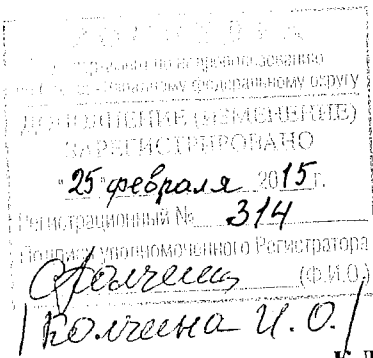 по недропользованию
федеральному округу
ДОПОЛНЕНИЕ (ИЗМЕНЕНИЕ)
ЗАРЕГИСТРИРОВАНО
"25" февраля 2015 г.
Регистрационный № 314
Подпись уполномоченного Регистратора
(Ф.И.О.)
/Колчина И.О./